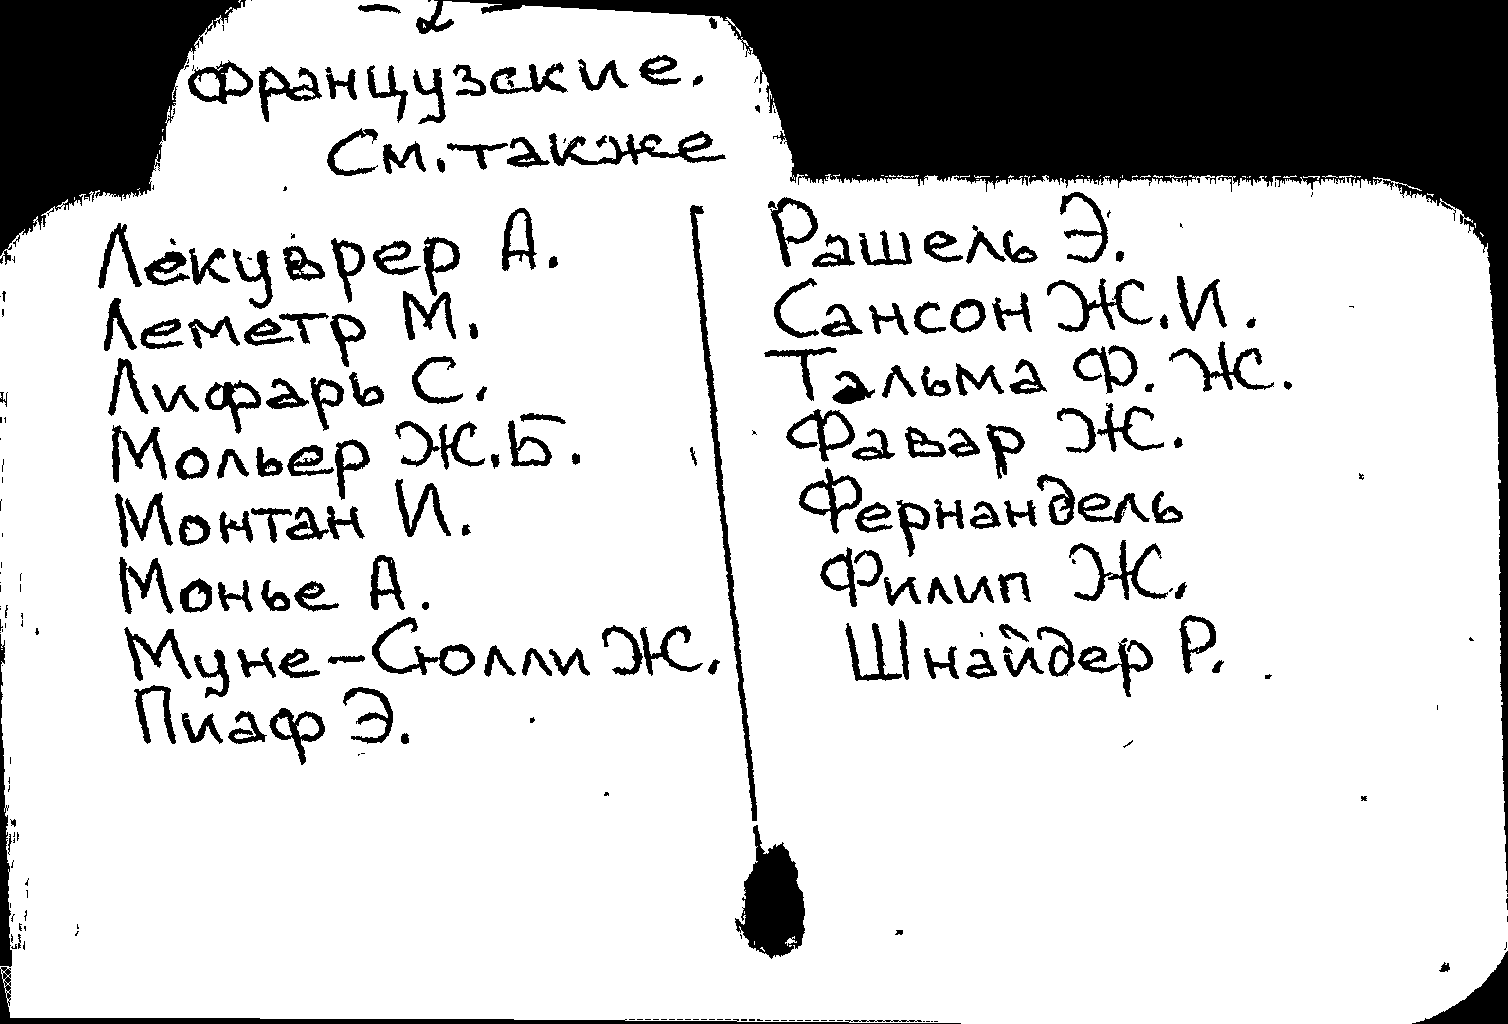 - 2 -
Французские.
См. также
Лекуврер А.
Леметр М.
Лифарь С.
Мольер Ж.Б.
Монтан И.
Монье А.
Муне-Сюлли Ж.
Пиаф Э.
Рашель Э.
Сансон Ж.И.
Тальма Ф. Ж.
Фавар Ж.
Фернандель
Филип Ж.
Шнайдер Р.